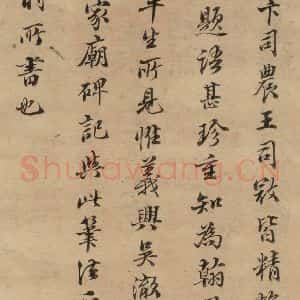 卞司農王司寇皆精於
題語甚珍重知為翰墨
平生所見惟義興吳澈
家廟碑記與此筆法
前所書也
Shufawang.CN